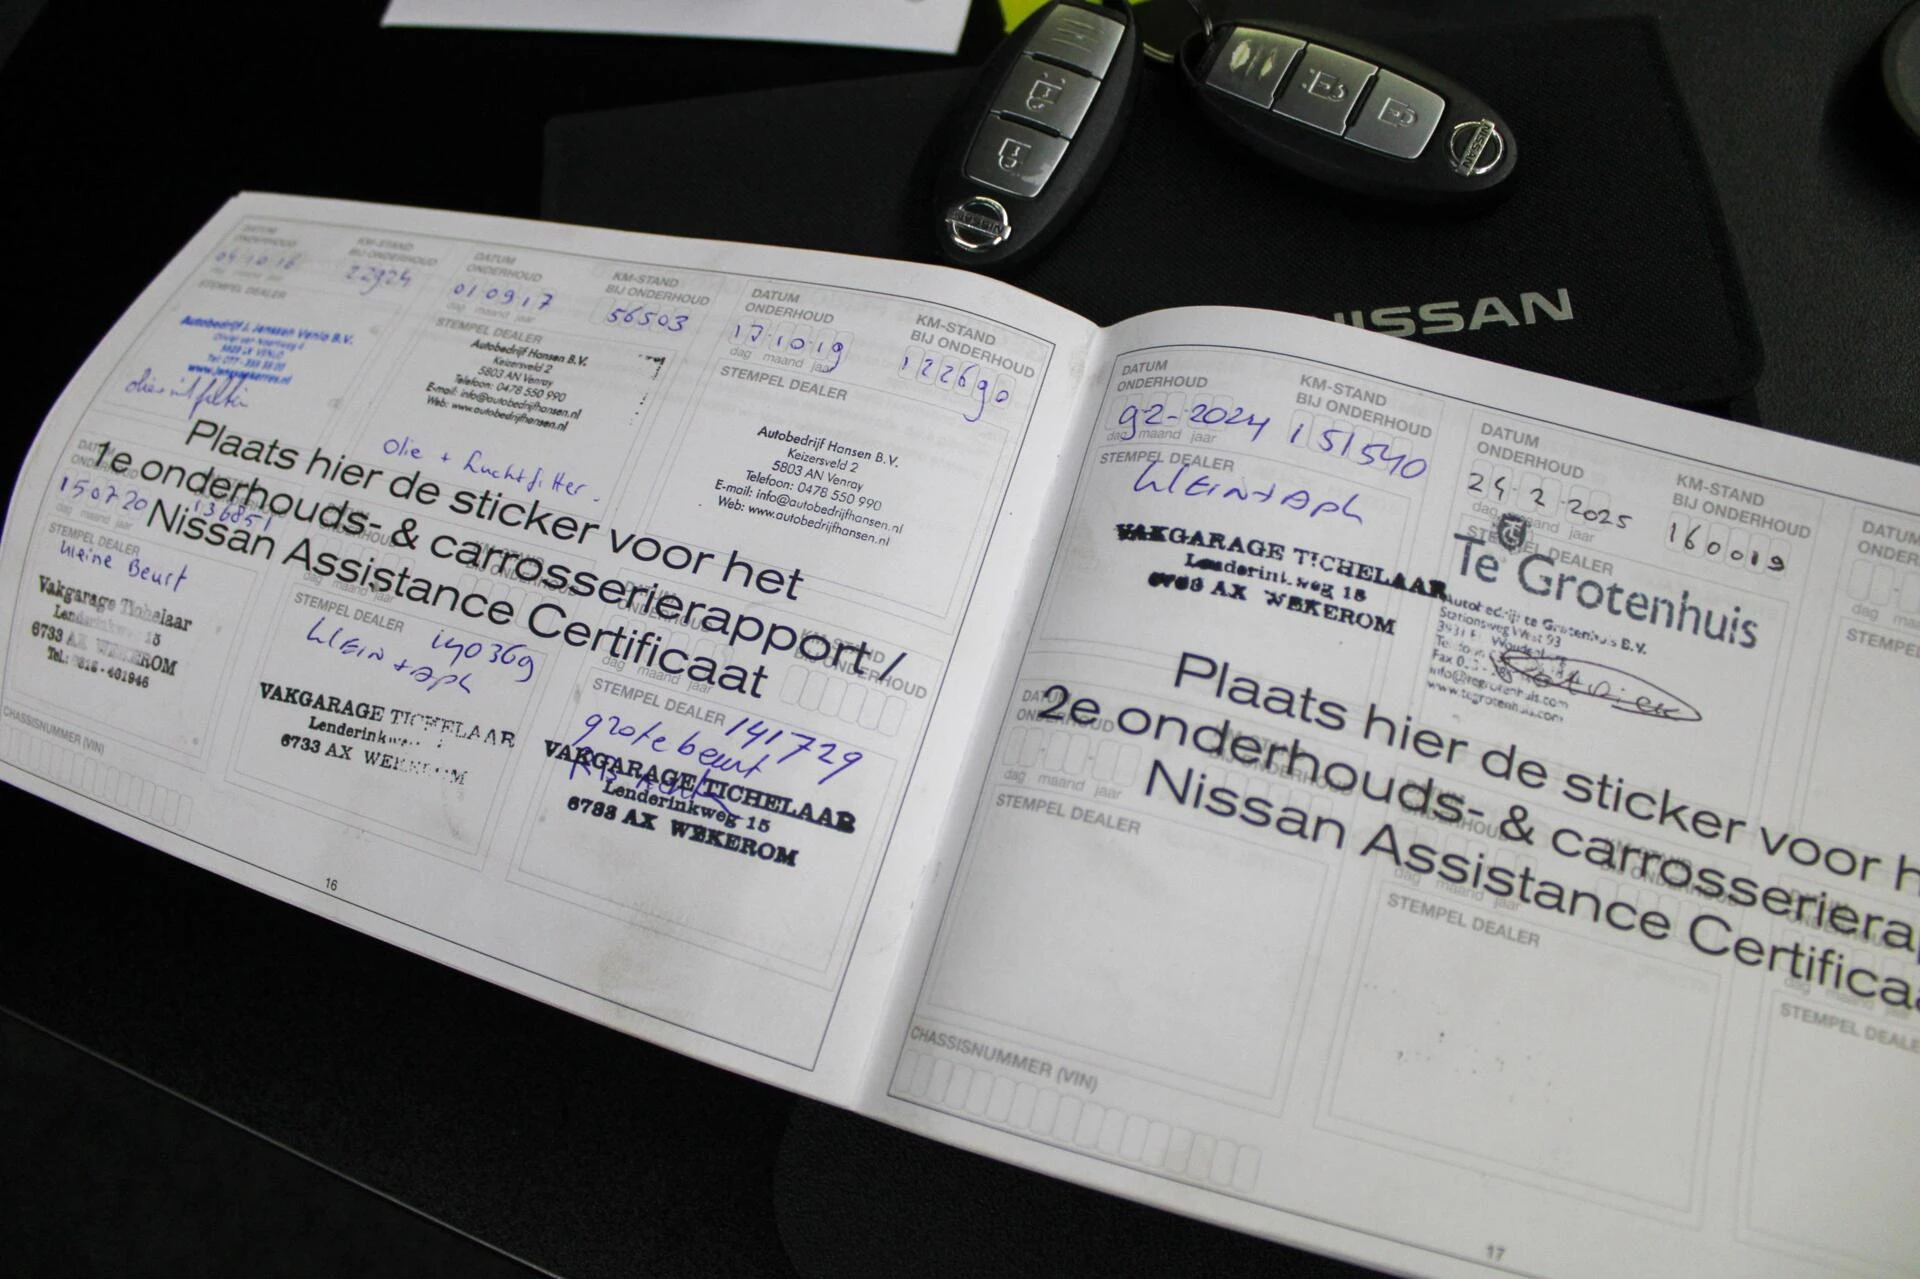 NISSAN
NISSAN
NISSAN
DATUM ONDERHOUD
KM-STAND BIJ ONDERHOUD
04 10 16
22924
dag maand jaar
STEMPEL DEALER
Autobedrijf J. Janssen Venlo B.V.
VENLO
DATUM ONDERHOUD
KM-STAND BIJ ONDERHOUD
01 09 17
56503
dag maand jaar
STEMPEL DEALER
Autobedrijf Hansen B.V.
Keizersveld 2
5803 AN Venray
Telefoon: 0478 550 990
E-mail: info@autobedrijfhansen.nl
Web: www.autobedrijfhansen.nl
Olie + Luchtfilter.
DATUM ONDERHOUD
KM-STAND BIJ ONDERHOUD
17 10 19
122690
dag maand jaar
STEMPEL DEALER
Autobedrijf Hansen B.V.
Keizersveld 2
5803 AN Venray
Telefoon: 0478 550 990
E-mail: info@autobedrijfhansen.nl
Web: www.autobedrijfhansen.nl
Plaats hier de sticker voor het
1e onderhouds- & carrosserierapport /
Nissan Assistance Certificaat
150720
136851
dag maand jaar
STEMPEL DEALER
kleine Beurt
Vakgarage Tichelaar
Lenderinkweg 15
6733 AX WEKEROM
CHASSISNUMMER (VIN)
STEMPEL DEALER
140369
klein + Apk
VAKGARAGE TICHELAAR
6733 AX WEKEROM
STEMPEL DEALER
141729
grote beurt
VAKGARAGE TICHELAAR
Lenderinkweg 15
6733 AX WEKEROM
16
DATUM ONDERHOUD
KM-STAND BIJ ONDERHOUD
92-2024
151540
dag maand jaar
STEMPEL DEALER
klein + Apk
VAKGARAGE TICHELAAR
Lenderinkweg 15
6733 AX WEKEROM
DATUM ONDERHOUD
KM-STAND BIJ ONDERHOUD
24-2-2025
160019
STEMPEL DEALER
Te Grotenhuis
Autobedrijf te Grotenhuis B.V.
Stationsweg West 93
info@tegrotenhuis.com
www.tegrotenhuis.com
Plaats hier de sticker voor h
2e onderhouds- & carrosseriera
Nissan Assistance Certificaa
dag maand jaar
STEMPEL DEALER
STEMPEL DEALER
STEMPEL DEALE
CHASSISNUMMER (VIN)
17